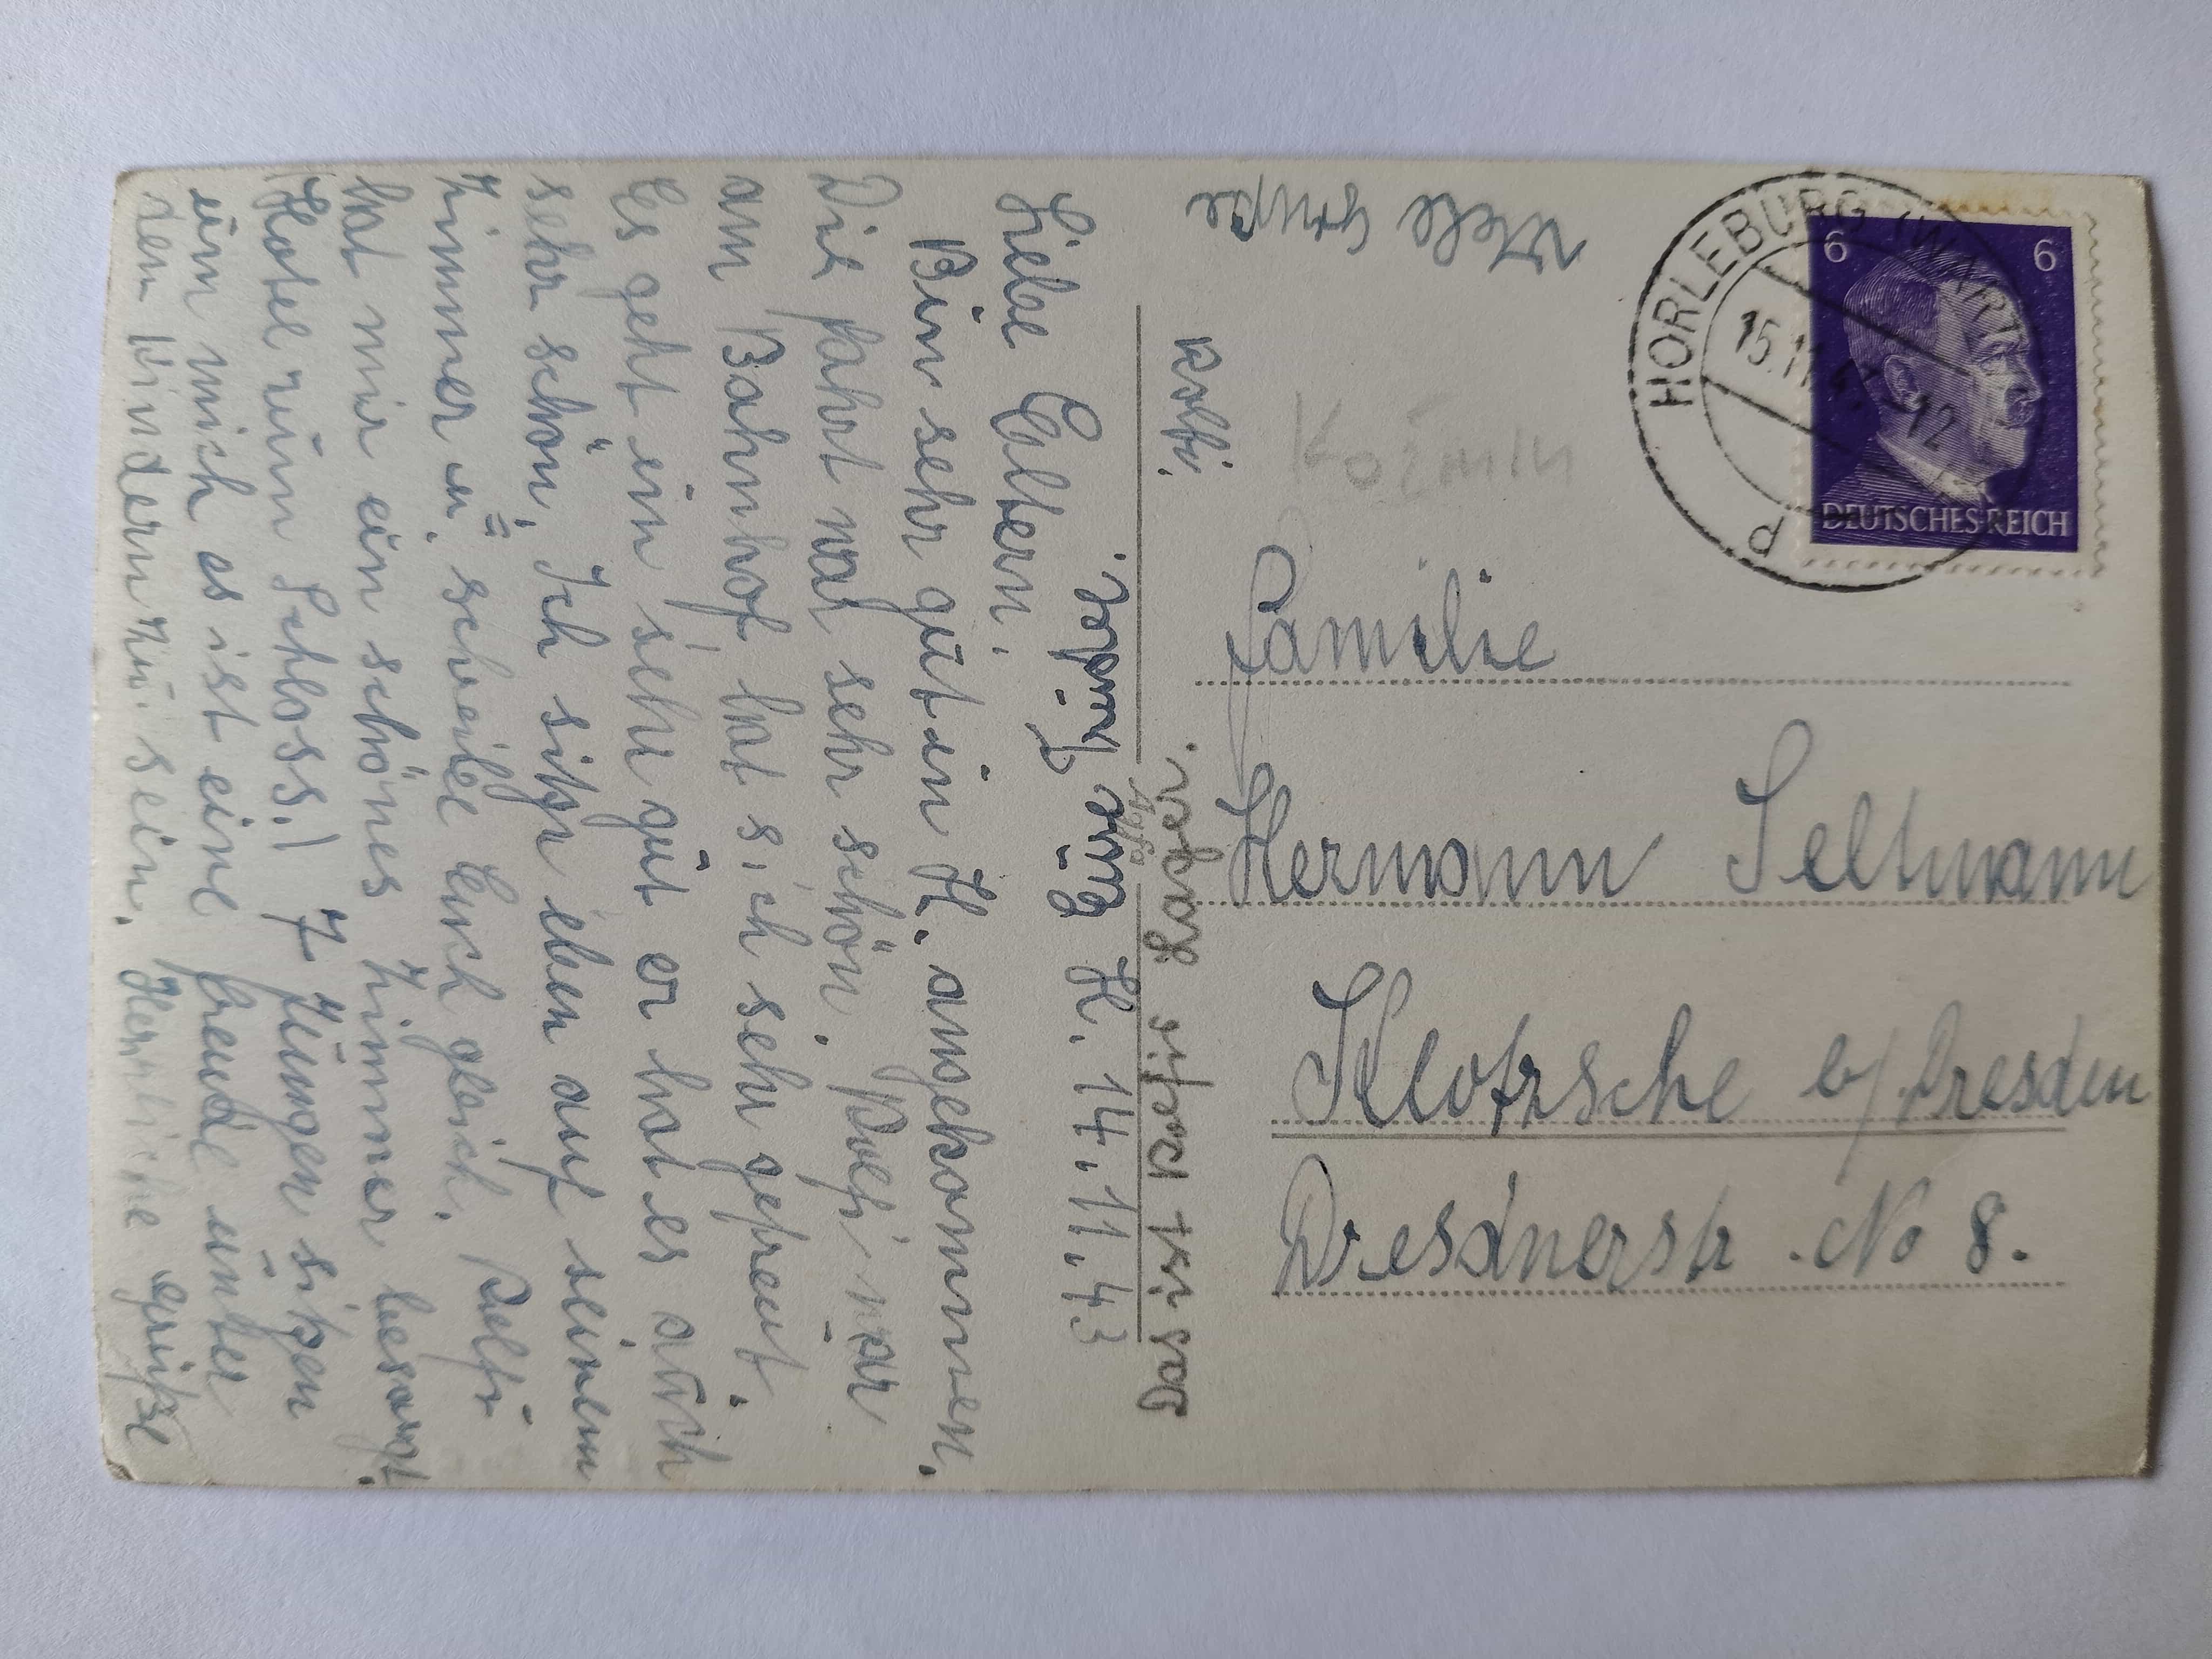 H. 14.11.43
Liebe Eltern.
Bin sehr gut in H. angekommen.
Die fahrt war sehr schön. Rolfi war
am Bahnhof hat sich sehr gefreut.
Es geht ein sehr gut er hat es auch
sehr schön. Ich sitze eben auf seinem
Zimmer u. scheibe Euch gleich. Rolfi
hat mir ein schönes Zimmer besorgt.
Hotel zum Schloss.! 7 Jungen sitzen
um mich es ist eine freude unter
den Kindern zu sein. Herzliche grüße
Eure Hilde.
Viele Grüße
Rolfi.
Das ist Rolfis Lager.
Koźmin
Familie
Hermann Seltmann
Klotzsche b/Dresden
Dresdnerstr. No 8.
HORLEBURG (WARTH
15.11.43-12
6 6
DEUTSCHES REICH